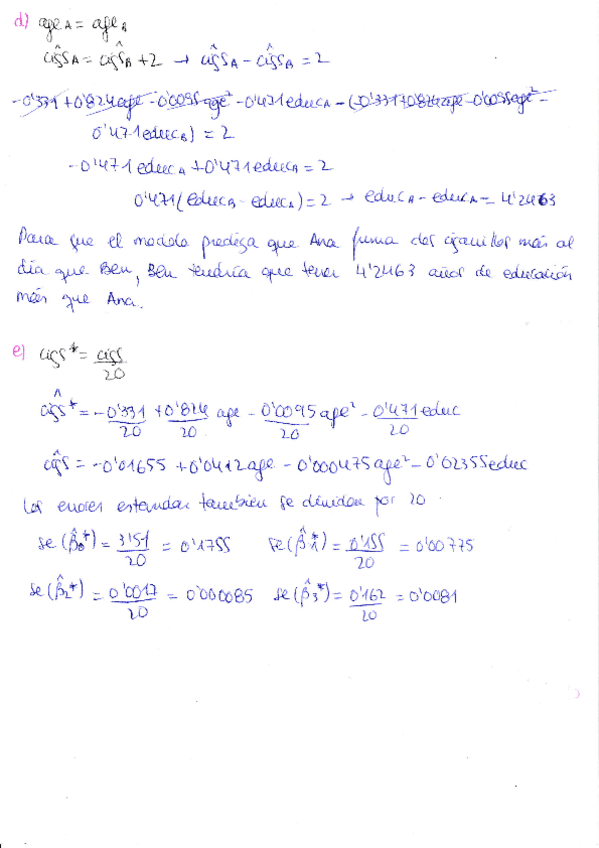 d) age A = age B
cigs A = cigs B + 2 → cigs A − cigs B = 2
-0'331+0'824age -0'0095age² -0'471educA -(-0'331+0'824age -0'0095age² -
0'471educB) = 2
-0'471educA+0'471educB = 2
0'471(educB - educA) = 2 → educB - educA = 4'2463
Para que el modelo prediga que Ana fuma dos cigarrillos más al
día que Ben, Ben tendría que tener 4'2463 años de educación
más que Ana.
e) cigs* = cigs/20
cigs* = -0'331/20 + 0'824/20 age - 0'0095/20 age² - 0'471/20 educ
cigs = -0'01655 + 0'0412age - 0'000475age² - 0'02355educ
Los errores estandar también se dividen por 20.
se(β̂0*) = 3'51/20 = 0'1755 se(β̂1*) = 0'155/20 = 0'00775
se(β̂2*) = 0'0017/20 = 0'000085 se(β̂3*) = 0'162/20 = 0'0081